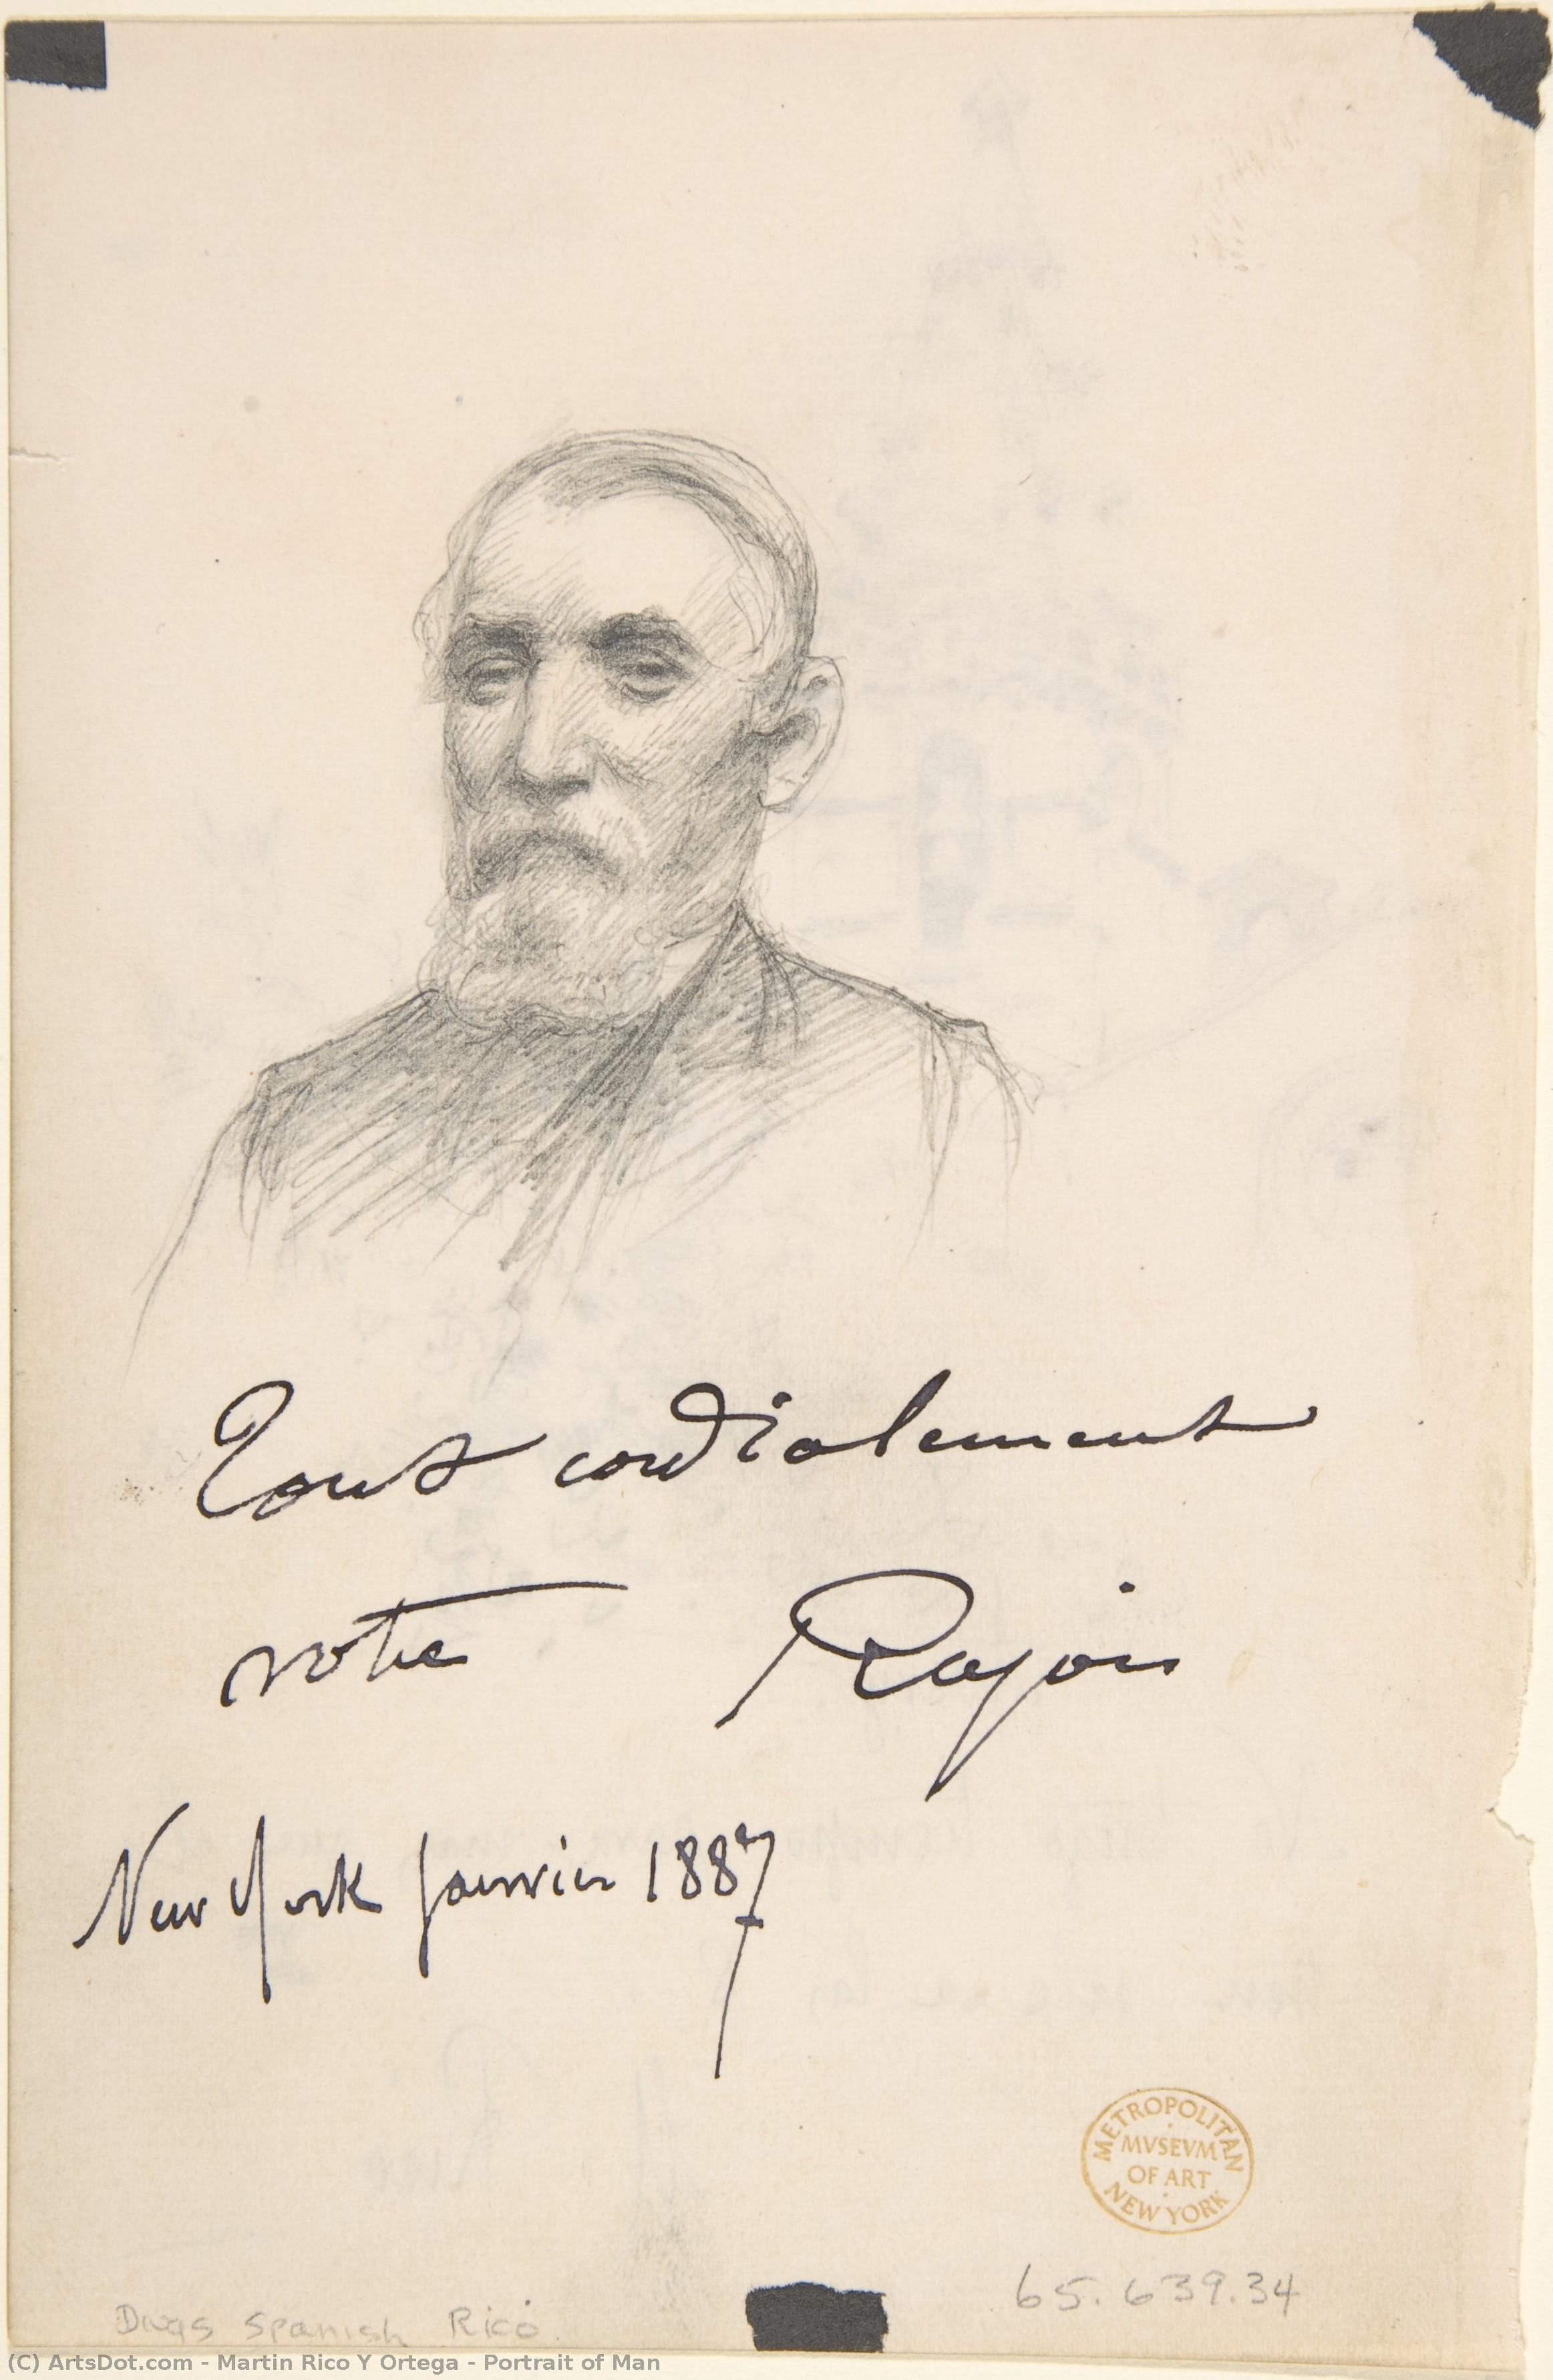 Tout cordialement
votre Rajon
New York Janvier 1887
METROPOLITAN
MVSEVM
OF ART
NEW YORK
65.639.34
Dwgs Spanish Rico
(C) ArtsDot.com - Martin Rico Y Ortega - Portrait of Man